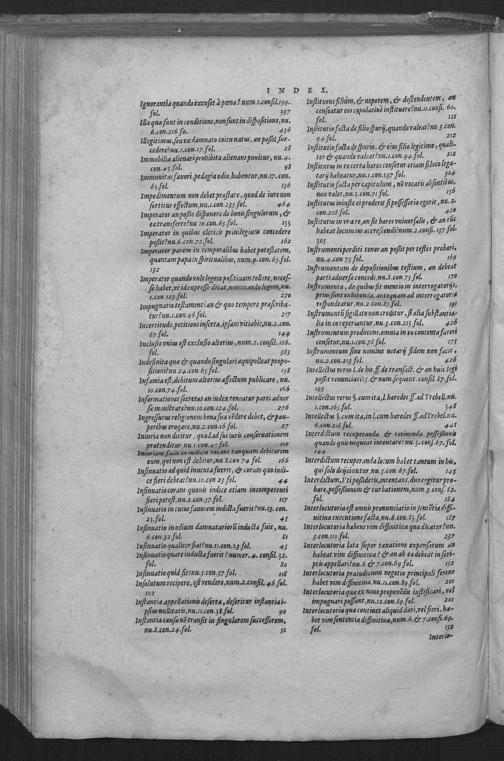 INDEX.
Ignorantia quando excuset à pœna? num.1.consil.199.
fol. 397
Illa quæ sunt in conditione, non sunt in dispositione, nu.
6.con.216 fo. 436
Illegitimus, seu ex damnato coitu natus, an possit suc-
cedere? nu.1.con.17.fol. 28
Immobilia alienari prohibita alienans punitur, nu.4.
con.45.fol. 98
Immunitas fauori, pedagia odio, habentur, nu.17.con.
65.fol. 136
Impedimentum non debet præstare, quod de iure non
sortitur effectum, nu.1.con.235.fol. 464
Imperator an possit disponere de bonis singulorum, &
ea transferre? nu.10.con.65.fol. 133
Imperator in quibus clericis priuilegium concedere
possit? nu.6.con.72.fol. 162
Imperator parem in temporalibus habet potestatem,
quantam papa in spiritualibus, num.9.con.65.fol.
132
Imperator quando vult legem positiuam tollere, neces-
se habet, vt id expresse dicat, nominando legem, nu.
1.con 123.fol. 270
Impugnatio testamenti an & quo tempore præscriba-
tur? nu.1.con.96.fol. 217
Incertitudo, petitioni inserta, ipsam vitiabit, nu.2.con.
67.fol. 144
Inclusio vnius est exclusio alterius, num.2.consil.186.
fol. 383
Indefinita quæ & quando singulari æquipolleat propo-
sitioni? nu.24.con.65.fol. 138
Infamia est, debitum alterius affectum publicare, nu.
10.con.74.fol. 166
Informationes secretas an index teneatur parti aduer
sæ monstrare? nu.10.con.124.fol. 276
Ingressurus religionem bona sua vēdere debet, & pau-
peribus erogare, nu.2.con.16.fol. 27
Iniuria non dicitur, quod ad sui iuris conseruationem
prætenditur, nu.1.con.45.fol. 100
Iniuriam facit in iudicio vocans tanquam debitorem
eum, qui non est debitor, nu.8.con 74 fol. 166
Insinuatio ad quid inuenta fuerit, & coram quo iudi-
ce fieri debeat? nu.10.con 23 fol. 44
Insinuatio coram quouis iudice etiam incompetenti
fieri potest, nu.2.con.57.fol. 117
Insinuatio in cuius fauorem inducta fuerit? nu.13.con.
23.fol. 45
Insinuatio in odium damnatariorū inducta fuit, nu.
6.con.32.fol. 81
Insinuatio qualiter fiat? nu.11.con.23 fol. 45
Insinuatio quare inducta fuerit? numer.4.consil.32.
fol. 80
Insinuatio quid sit? nu.3.con.57.fol. 118
Insolutum recipere, est vendere, num.2.consil.46.fol.
102
Instantia appellationis deserta, deseritur instantia i-
psius nullitatis, nu.11.con.38.fol. 90
Instantia causæ nō transit in singularem successorem,
nu.8.con.24.fol. 51
Instituens filium, & nepotem, & descendentem, an
censeatur eos copulatiuè instituere? nu.11.consi.60.
fol. 121
Institutio facta de filio spurij, quando valeat? num 3.con.
94.fol. 212
Institutio facta de spurio, & eius filio legitimo, quali-
ter & quando valeat? nu.1.con.94.fol. 212
Institutus in re certa hæres censetur etiam si loco lega-
tarij habeatur, nu.1.con.137.fol. 304
Institutio facta per capitulum, nō vocatis absentibus,
non valet, nu.3.con.71.fol. 156
Institutum iniuste ei prodest si possessorio egerit, nu.2.
con.208 fol. 420
Institutus in vna re, an sit hæres vniuersalis, & an illi
habeat locum ius accrescendi? num.2.consi.137.fol.
303
Instrumenti perditi tenor an possit per testes probari,
nu.4.con 75.fol. 169
Instrumentum de depositionibus testium, an debeat
parti aduersæ concedi, nu.8.con 75.fol. 170
Instrumenta, de quibus fit mentio in interrogatorijs,
prius sunt exhibenta, antequam ad interrogatoria
respondeatur, nu.2.con.85.fol. 191
Instrumentū sigillato non creditur, si alia substantia-
lia in eo reperiantur, nu.3.con.213.fol. 426
Instrumentum producens, omnia in eo contenta fateri
censetur, nu.1.con.78 fol. 175
Instrumentum sine nomine notarij fidem non facit,
nu.2.con.213.fol. 426
Intellectus versu l.de his.ff.de transact. & an huic legi
possit renunciari; & num.sequent.consil.87.fol.
193
Intellectus versu §.cum ita, l.hæredes.ff.ad Trebell.nu.
1.con.165.fol. 348
Intellectus §.cum ita, in l.cum hæredes ff.ad Trebel.nu.
6.con.218.fol. 441
Interdictum recuperandæ & retinendæ possessionis
quando quis nequeat intentare? nu.5.con.67.fol.
144
Interdictum recuperanda locum habet tantum in his,
qui solo deijciuntur, nu.7.con.67.fol. 145
Interdictum, Vti possidetis, intentans, duo cogitur pro-
bare, possessionem & turbationem, num 3.consi 82.
fol. 184
Interlocutoria est omnis pronunciatio in sententia diffi-
nitiua executioni facta, nu.6.con.53 fol. 187
Interlocutoria habens vim diffinitiuæ quæ dicatur? nu.
3.con.110 fol. 237
Interlocutoria lata super taxatione expensarum an
habeat vim diffinitiuæ? & an ab ea debeat in scri-
ptis appellari? nu.6 & 7.con.69 fol. 152
Interlocutoria præiudicium negotio principali ferens
habet vim diffinitiuæ, nu.11.con.89.fol. 201
Interlocutoria quæ ex nouo proponēdis iustificari, vel
impugnari possunt, nu.12.con.89.fol. 201
Interlocutoria quæ continet aliquid dari, vel fieri, ha-
bet vim sententiæ diffinitiuæ, num.6.& 7.consi.69.
fol. 152
Interlo-